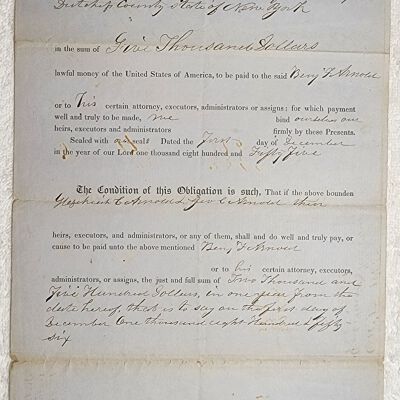 Dutchess County State of New York
in the sum of Five Thousand Dollars
lawful money of the United States of America, to be paid to the said Benj F Arnold
or to his certain attorney, executors, administrators or assigns: for which payment
well and truly to be made, we bind ourselves our
heirs, executors and administrators firmly by these Presents.
Sealed with our seals Dated the First day of December
in the year of our Lord one thousand eight hundred and Fifty Five
The Condition of this Obligation is such, That if the above bounden
C Arnold & Geo C Arnold their
heirs, executors, and administrators, or any of them, shall and do well and truly pay, or
cause to be paid unto the above mentioned Benj F Arnold
or to his certain attorney, executors,
administrators, or assigns, the just and full sum of Two Thousand and
Five Hundred Dollars, in one year from the
date hereof, that is to say on the first day of
December One thousand eight Hundred & fifty
six